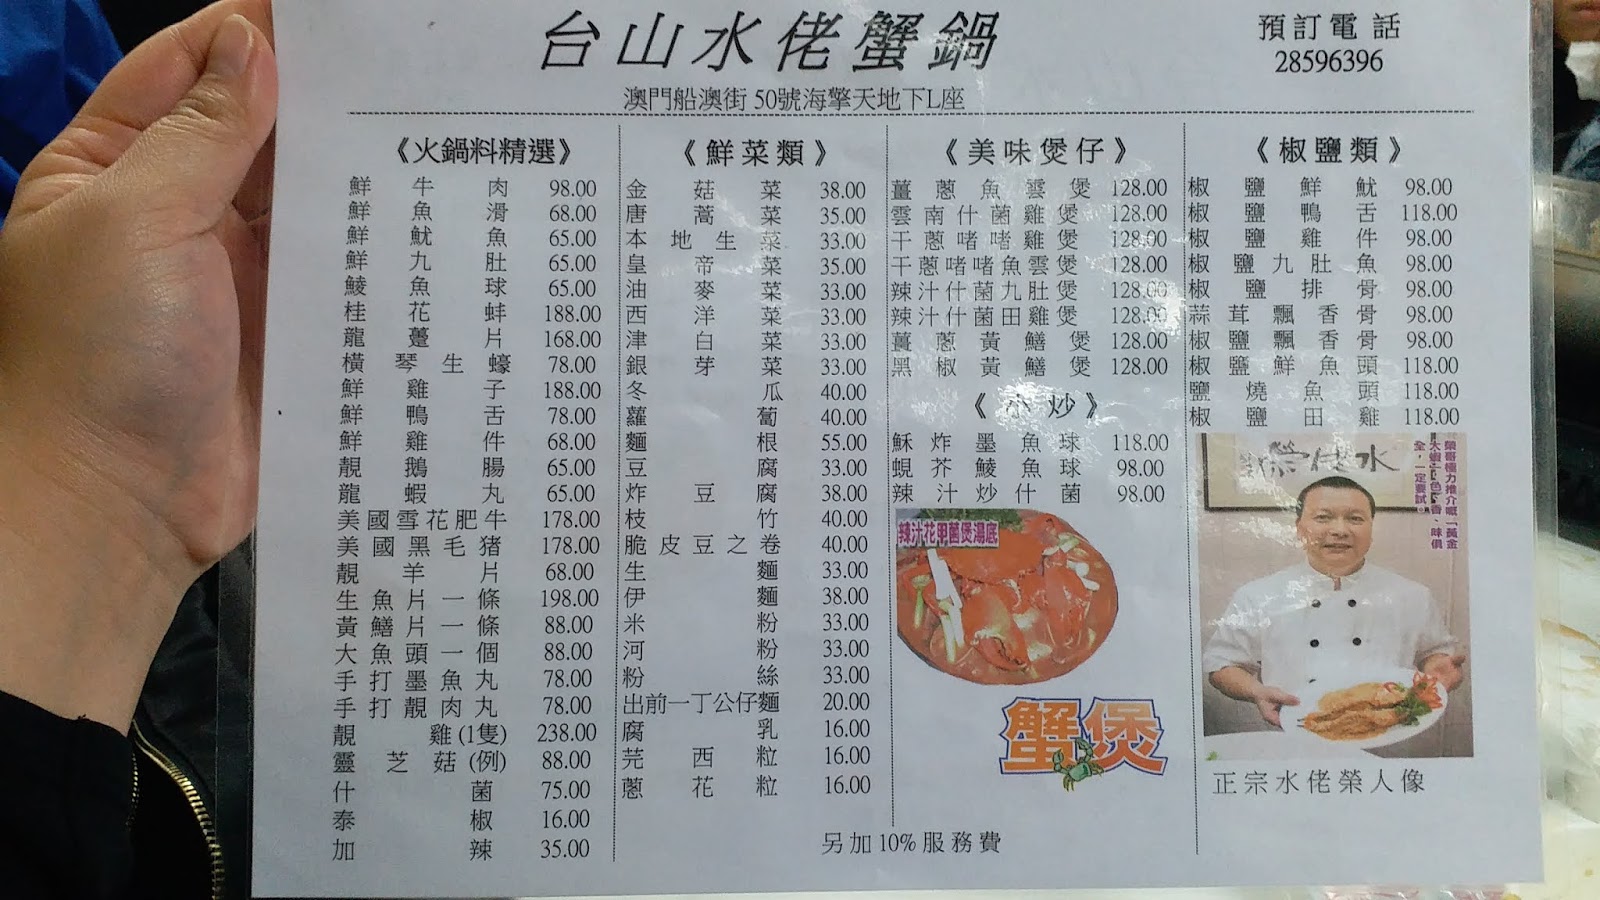 台山水佬蟹鍋
預訂電話
28596396
澳門船澳街 50號海擎天地下L座
《火鍋料精選》
鮮牛肉 98.00
鮮魚滑 68.00
鮮魷魚 65.00
鮮九肚 65.00
鯪魚球 65.00
桂花蚌 188.00
龍躉片 168.00
橫琴生蠔 78.00
鮮雞子 188.00
鮮鴨舌 78.00
鮮雞件 68.00
靚鵝腸 65.00
龍蝦丸 65.00
美國雪花肥牛 178.00
美國黑毛猪 178.00
靚羊片 68.00
生魚片一條 198.00
黃鱔片一條 88.00
大魚頭一個 88.00
手打墨魚丸 78.00
手打靚肉丸 78.00
靚雞(1隻) 238.00
靈芝菇(例) 88.00
什菌 75.00
泰椒 16.00
加辣 35.00
《鮮菜類》
金菇菜 38.00
唐蒿菜 35.00
本地生菜 33.00
皇帝菜 35.00
油麥菜 33.00
西洋菜 33.00
津白菜 33.00
銀芽菜 33.00
冬瓜 40.00
蘿蔔 40.00
麵根 55.00
豆腐 33.00
炸豆腐 38.00
枝竹 40.00
脆皮豆之卷 40.00
生麵 33.00
伊麵 38.00
米粉 33.00
河粉 33.00
粉絲 33.00
出前一丁公仔麵 20.00
腐乳 16.00
芫西粒 16.00
蔥花粒 16.00
《美味煲仔》
薑蔥魚雲煲 128.00
雲南什菌雞煲 128.00
干蔥啫啫雞煲 128.00
干蔥啫啫魚雲煲 128.00
辣汁什菌九肚煲 128.00
辣汁什菌田雞煲 128.00
薑蔥黃鱔煲 128.00
黑椒黃鱔煲 128.00
《小炒》
穌炸墨魚球 118.00
蜆芥鯪魚球 98.00
辣汁炒什菌 98.00
辣汁花甲菌煲湯底
蟹煲
《椒鹽類》
椒鹽鮮魷 98.00
椒鹽鴨舌 118.00
椒鹽雞件 98.00
椒鹽九肚魚 98.00
椒鹽排骨 98.00
蒜茸飄香骨 98.00
椒鹽飄香骨 98.00
椒鹽鮮魚頭 118.00
鹽燒魚頭 118.00
椒鹽田雞 118.00
榮哥極力推介嘅「黃金
大蝦」色、香、味俱
全，一定要試。
正宗水佬榮人像
另加10%服務費